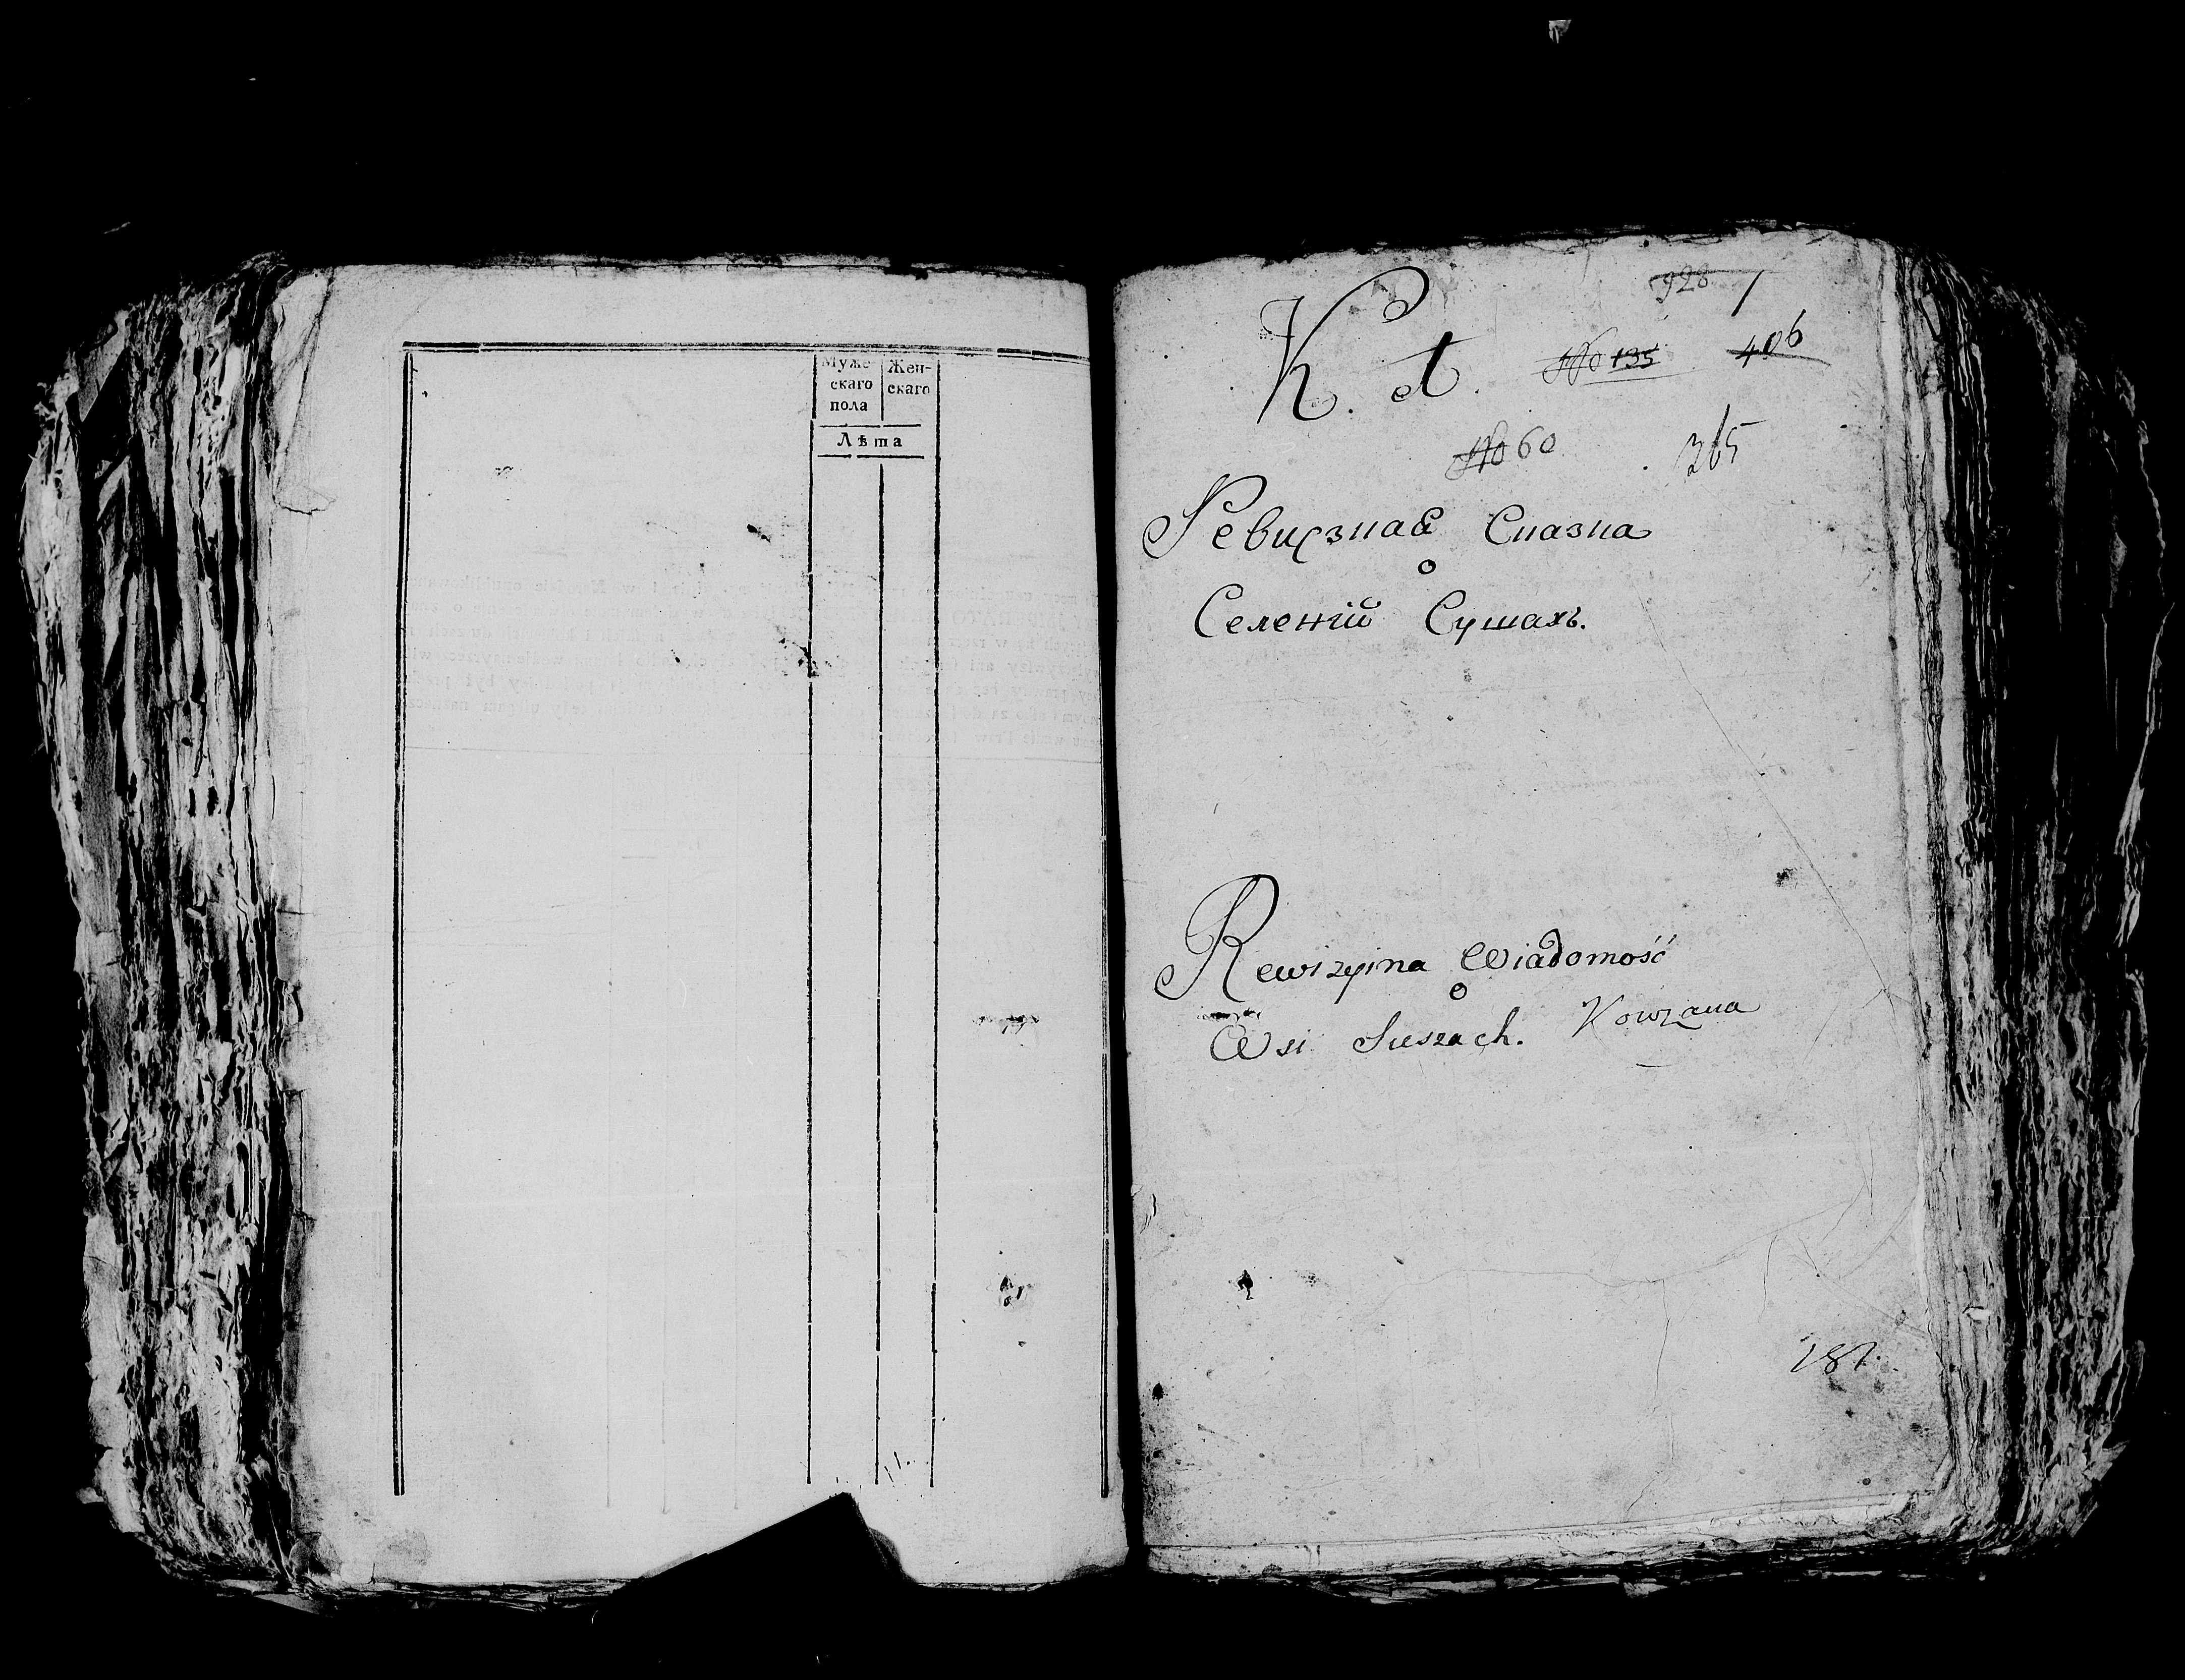 Муже-
скаго
пола
Жен-
скаго
Лѣта
11.
928
К. А.
No 135
406
No 60
365
Ревизная Сказка
о
Селеній Сушахъ.
Rewizyina Wiadomość
o
Wsi Suszach. Kowzana
181.